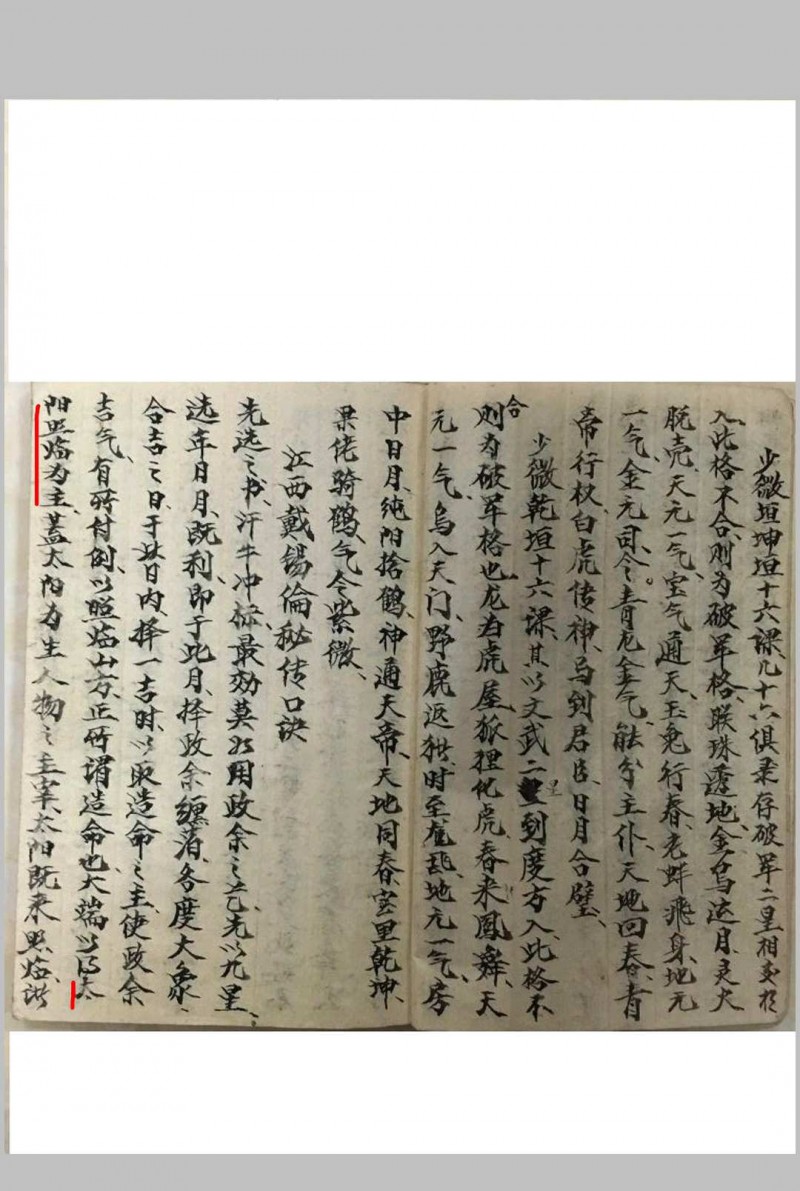 少微垣坤垣十六课、凡十六俱录存破军二星相交于
入此格不合、则为破军格、联珠透地、金乌达月、灵犬
脱壳、天元一气、宝气通天、玉兔行春、老蚌飛身、地元
一气、金元司令。青龙金气、能分主仆、天地回春、青
帝行权、白虎传神、马到君臣、日月合璧、
少微乾垣十六课、其以文武二星到度方入此格不
合则为破军格也、龙为虎屋、狐狸化虎、春来鳳舞、天
元一气、乌入天门、野鹿返、时至、地元一气、房
中日月、纯阳捨鶴、神通天帝、天地同春、室里乾坤、
果佬骑鶴、气令紫微、
江西戴锡倫秘传口訣
先选之书、汗牛冲栋、最効莫如用政余之艺、先以九星、
选年日月、既利、即于此月、择政余缠落、各度大象、
合吉之日、于此日内、择一吉时、以取造命之主、使政余
吉气、有所付倒、以照临山方、正所谓造命也、大端以得太
阳照临为主、蓋太阳为生人物之主宰、太阳既来照临、諸